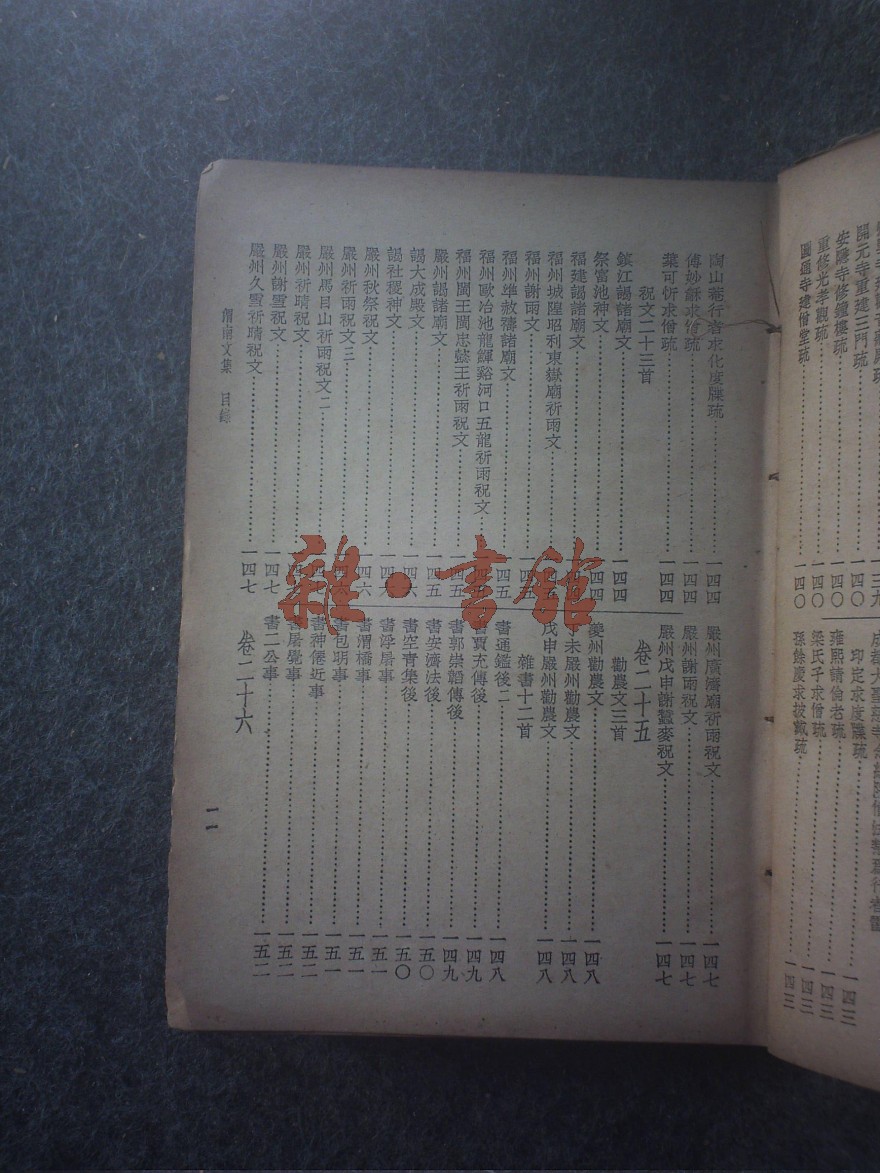 開元寺重建三門琉
一四〇
安隱寺修鐘樓琉
一四〇
重修光孝觀琉
一四〇
圓通寺建僧堂琉
一四〇
印定求度牒琉
一四三
雍熙請倫老琉
一四三
梁氏子求僧琉
一四三
孫餘慶求披戴琉
一四三
陶山菴行者求化度牒琉……一四四
傅妙龢求僧琉……一四四
葉可忻求僧琉……一四四
祝文二十三首
鎮江謁諸廟文……一四四
祭富池神文……一四四
福建謁諸廟文
福州城隍昭利東嶽廟祈雨文
福州謝雨文
福州準赦禱諸廟文……一四五
福州歐冶池龍鱓谿河口五龍祈雨祝文
福州閩王閩忠懿王祈雨祝文
嚴州謁諸廟文……一四五
謁大成殿文……一四六
謁社稷神文……一四六
嚴州秋祭祝文……一四六
嚴州祈雨祝文三
嚴州馬目山祈雨祝文二
嚴州祈晴祝文
嚴州謝雪祝文……一四七
嚴州久雪祈晴祝文……一四七
嚴州廣濟廟祈雨祝文……一四七
嚴州謝雨祝文……一四七
嚴州戊申謝蠶麥祝文……一四七
卷二十五
勸農文三首
夔州勸農文……一四八
丁未嚴州勸農文……一四八
戊申嚴州勸農文……一四八
雜書十二首
書通鑑後二……一四八
書賈充傳後……一四九
書郭崇韜傳後……一四九
書安濟法後……一五〇
書空青集後……一五〇
書浮屠事……一五一
書渭橋事……一五一
書包明事……一五一
書神僊近事……一五二
書屠覺事……一五二
書二公事……一五二
卷二十六
渭南文集 目錄
一一
雜·書館